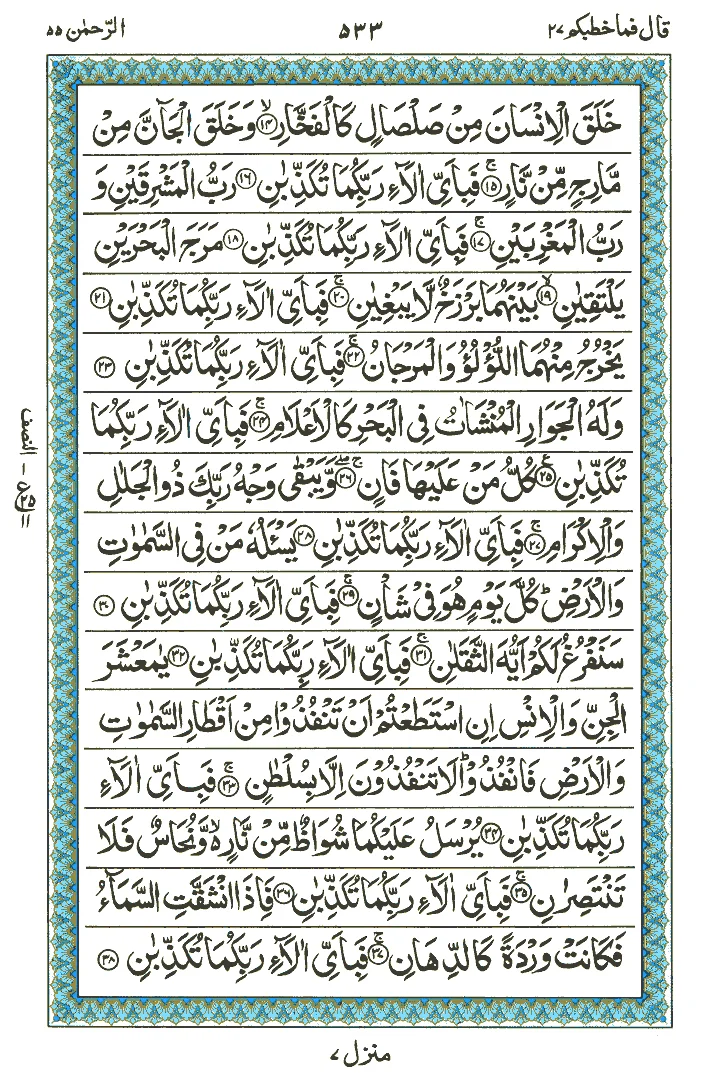 قال فما خطبكم ٢٧ ٥٣٣ الرّحمٰن ٥٥
خَلَقَ الْاِنْسَانَ مِنْ صَلْصَالٍ كَالْفَخَّارِ ۙ﴿١٤﴾ وَخَلَقَ الْجَآنَّ مِنْ
مَّارِجٍ مِّنْ نَّارٍ ۚ﴿١٥﴾ فَبِاَىِّ اٰلَآءِ رَبِّكُمَا تُكَذِّبٰنِ ﴿١٦﴾ رَبُّ الْمَشْرِقَيْنِ وَ
رَبُّ الْمَغْرِبَيْنِ ۚ﴿١٧﴾ فَبِاَىِّ اٰلَآءِ رَبِّكُمَا تُكَذِّبٰنِ ﴿١٨﴾ مَرَجَ الْبَحْرَيْنِ
يَلْتَقِيٰنِ ۙ﴿١٩﴾ بَيْنَهُمَا بَرْزَخٌ لَّا يَبْغِيٰنِ ۚ﴿٢٠﴾ فَبِاَىِّ اٰلَآءِ رَبِّكُمَا تُكَذِّبٰنِ ﴿٢١﴾
يَخْرُجُ مِنْهُمَا اللُّؤْلُؤُ وَالْمَرْجَانُ ۚ﴿٢٢﴾ فَبِاَىِّ اٰلَآءِ رَبِّكُمَا تُكَذِّبٰنِ ﴿٢٣﴾
وَلَهُ الْجَوَارِ الْمُنْشَاٰتُ فِى الْبَحْرِ كَالْاَعْلَامِ ۚ﴿٢٤﴾ فَبِاَىِّ اٰلَآءِ رَبِّكُمَا
تُكَذِّبٰنِ ﴿٢٥﴾ كُلُّ مَنْ عَلَيْهَا فَانٍ ۚۖ﴿٢٦﴾ وَّيَبْقٰى وَجْهُ رَبِّكَ ذُو الْجَلٰلِ
وَالْاِكْرَامِ ۚ﴿٢٧﴾ فَبِاَىِّ اٰلَآءِ رَبِّكُمَا تُكَذِّبٰنِ ﴿٢٨﴾ يَسْئَلُهٗ مَنْ فِى السَّمٰوٰتِ
وَالْاَرْضِ ؕ كُلَّ يَوْمٍ هُوَ فِىْ شَاْنٍ ۚ﴿٢٩﴾ فَبِاَىِّ اٰلَآءِ رَبِّكُمَا تُكَذِّبٰنِ ﴿٣٠﴾
سَنَفْرُغُ لَكُمْ اَيُّهَ الثَّقَلٰنِ ۚ﴿٣١﴾ فَبِاَىِّ اٰلَآءِ رَبِّكُمَا تُكَذِّبٰنِ ﴿٣٢﴾ يٰمَعْشَرَ
الْجِنِّ وَالْاِنْسِ اِنِ اسْتَطَعْتُمْ اَنْ تَنْفُذُوْا مِنْ اَقْطَارِ السَّمٰوٰتِ
وَالْاَرْضِ فَانْفُذُوْا ؕ لَا تَنْفُذُوْنَ اِلَّا بِسُلْطٰنٍ ۚ﴿٣٣﴾ فَبِاَىِّ اٰلَآءِ
رَبِّكُمَا تُكَذِّبٰنِ ﴿٣٤﴾ يُرْسَلُ عَلَيْكُمَا شُوَاظٌ مِّنْ نَّارٍ ۙ۬ وَّنُحَاسٌ فَلَا
تَنْتَصِرٰنِ ۚ﴿٣٥﴾ فَبِاَىِّ اٰلَآءِ رَبِّكُمَا تُكَذِّبٰنِ ﴿٣٦﴾ فَاِذَا انْشَقَّتِ السَّمَآءُ
فَكَانَتْ وَرْدَةً كَالدِّهَانِ ۚ﴿٣٧﴾ فَبِاَىِّ اٰلَآءِ رَبِّكُمَا تُكَذِّبٰنِ ﴿٣٨﴾
النصف
منزل ٧